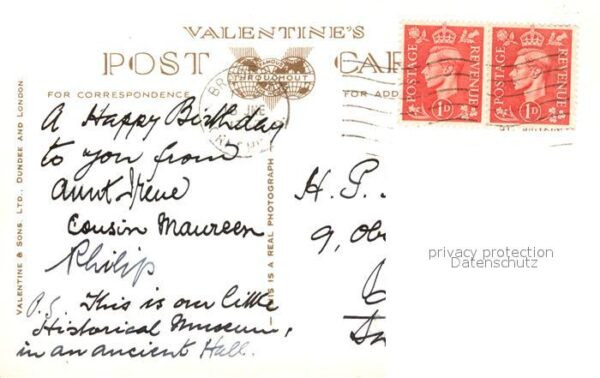 VALENTINE'S
POST CAR
THROUGHOUT
FOR CORRESPONDENCE
FOR ADD
A Happy Birthday
to you from
Aunt Irene
Cousin Maureen
Philip
P.S. This is our little
Historical Museum,
in an ancient Hall.
VALENTINE & SONS, LTD., DUNDEE AND LONDON
THIS IS A REAL PHOTOGRAPH
POSTAGE REVENUE
1D
POSTAGE REVENUE
1D
H. P.
9, Ob
privacy protection
Datenschutz